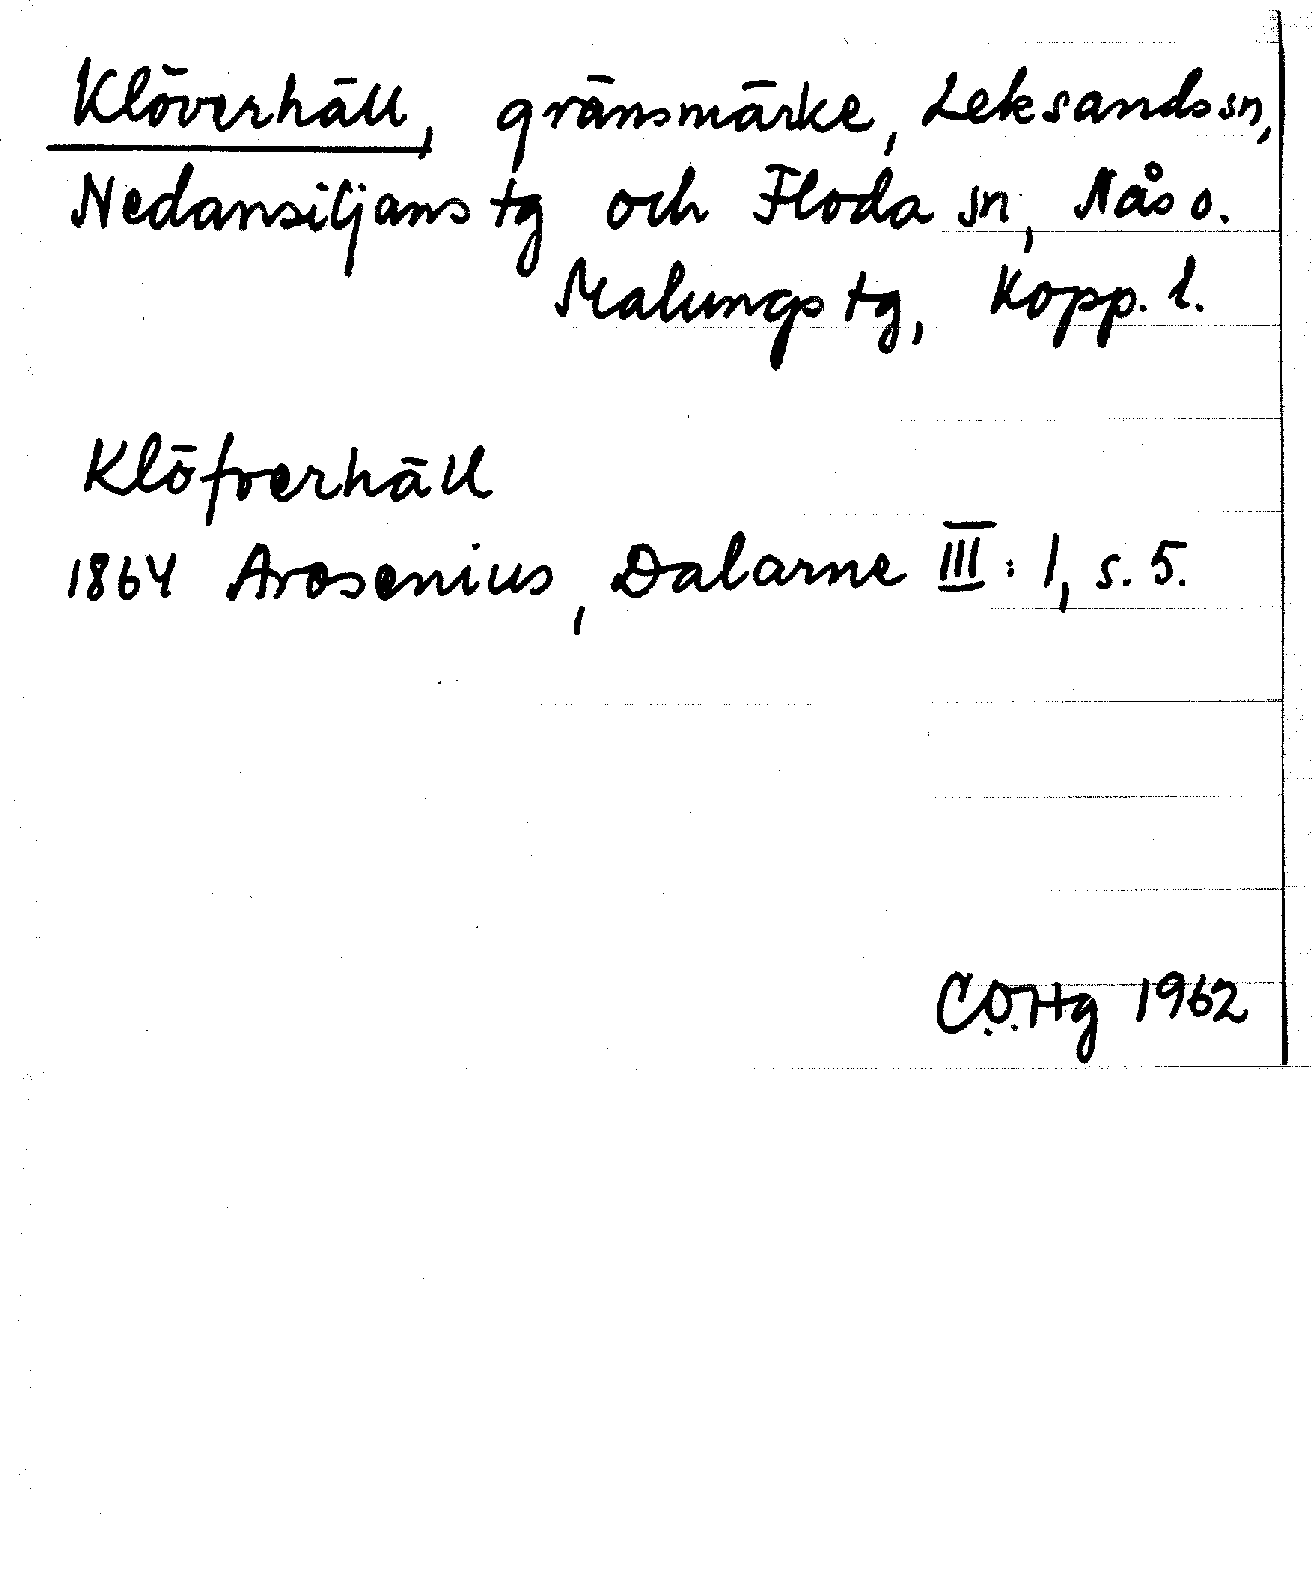 Klöverhäll, gränsmärke, Leksands sn,
Nedansiljans tg och Floda sn, Nås o.
Malungs tg, Kopp. l.
Klöfverhäll
1864 Arosenius, Dalarne III: 1, s. 5.
C.O.Hg 1962